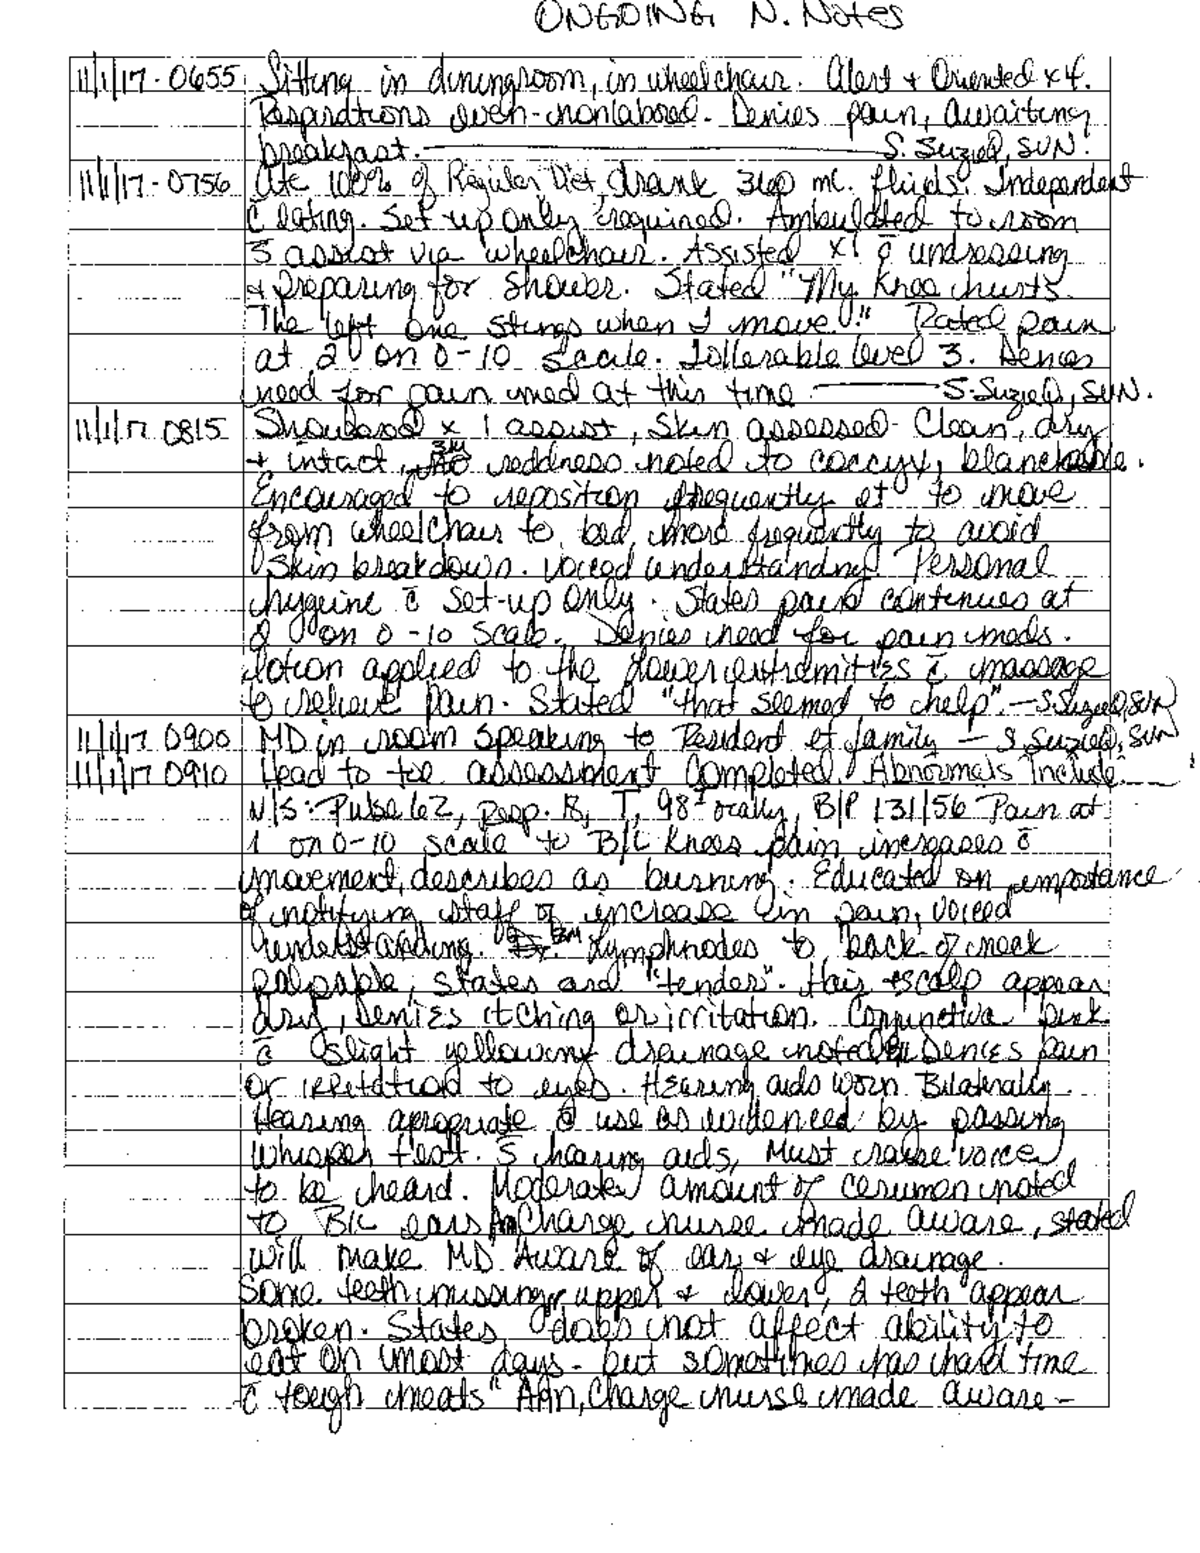 ONGOING N. Notes
11/1/17 - 0655 Sitting in diningroom, in wheelchair. Alert + Oriented x 4.
Respirations even - nonlabored. Denies pain, awaiting
breakfast. S. SuzieQ, SVN.
11/1/17 - 0756 Ate 100% of Regular Diet, drank 360 mL. fluids. Independent
c̄ eating. Set up only required. Ambulated to room
s̄ assist via wheelchair. Assisted x1 c̄ undressing
+ preparing for shower. Stated "My knee hurts.
The left one stings when I move." Rated pain
at 2 on 0-10 scale. Tollerable level 3. Denies
need for pain med at this time S. SuzieQ, SVN.
11/1/17 0815 Showered x 1 assist, Skin assessed - Clean, dry
+ intact, reddness noted to coccyx, blancheable.
Encouraged to reposition frequently et to move
from wheelchair to bed, more frequently to avoid
Skin breakdown. Voiced understanding. Personal
hygeine c̄ set-up only. States pain continues at
2 on 0-10 scale. Denies need for pain meds.
Lotion applied to the lower extremities c̄ massage
to relieve pain. Stated "that seemed to help". — S. SuzieQ, SVN
11/1/17 0900 MD in room speaking to Resident et family — S. SuzieQ, SVN
11/1/17 0910 Head to toe assessment completed. Abnormals Include:
V/S: Pulse 62, Resp. 18, T, 98² orally, B/P 131/56 Pain at
1 on 0-10 scale to B/L Knees pain increases c̄
movement, describes as burning. Educated on importance
of notifying staff of increase in pain, voiced
understanding. Lymphnodes to back of neck
palpable, states are "tender". Hair + scalp appear
dry, Denies itching or irritation. Conjunctiva pink
c̄ slight yellowing drainage noted. Denies pain
or irritation to eyes. Hearing aids worn Bilaterally.
Hearing apropriate c̄ use as evidenced by passing
whisper test. s̄ hearing aids, Must raise voice
to be heard. Moderate amount of cerumen noted
to B/L ears Ann Charge nurse made aware, stated
will make MD Aware of ear + eye drainage.
Some teeth missing upper + lower, 2 teeth appear
broken. States, "does not affect ability to
eat on most days - but sometimes has hard time
c̄ tough meats" Ann, Charge nurse made aware —